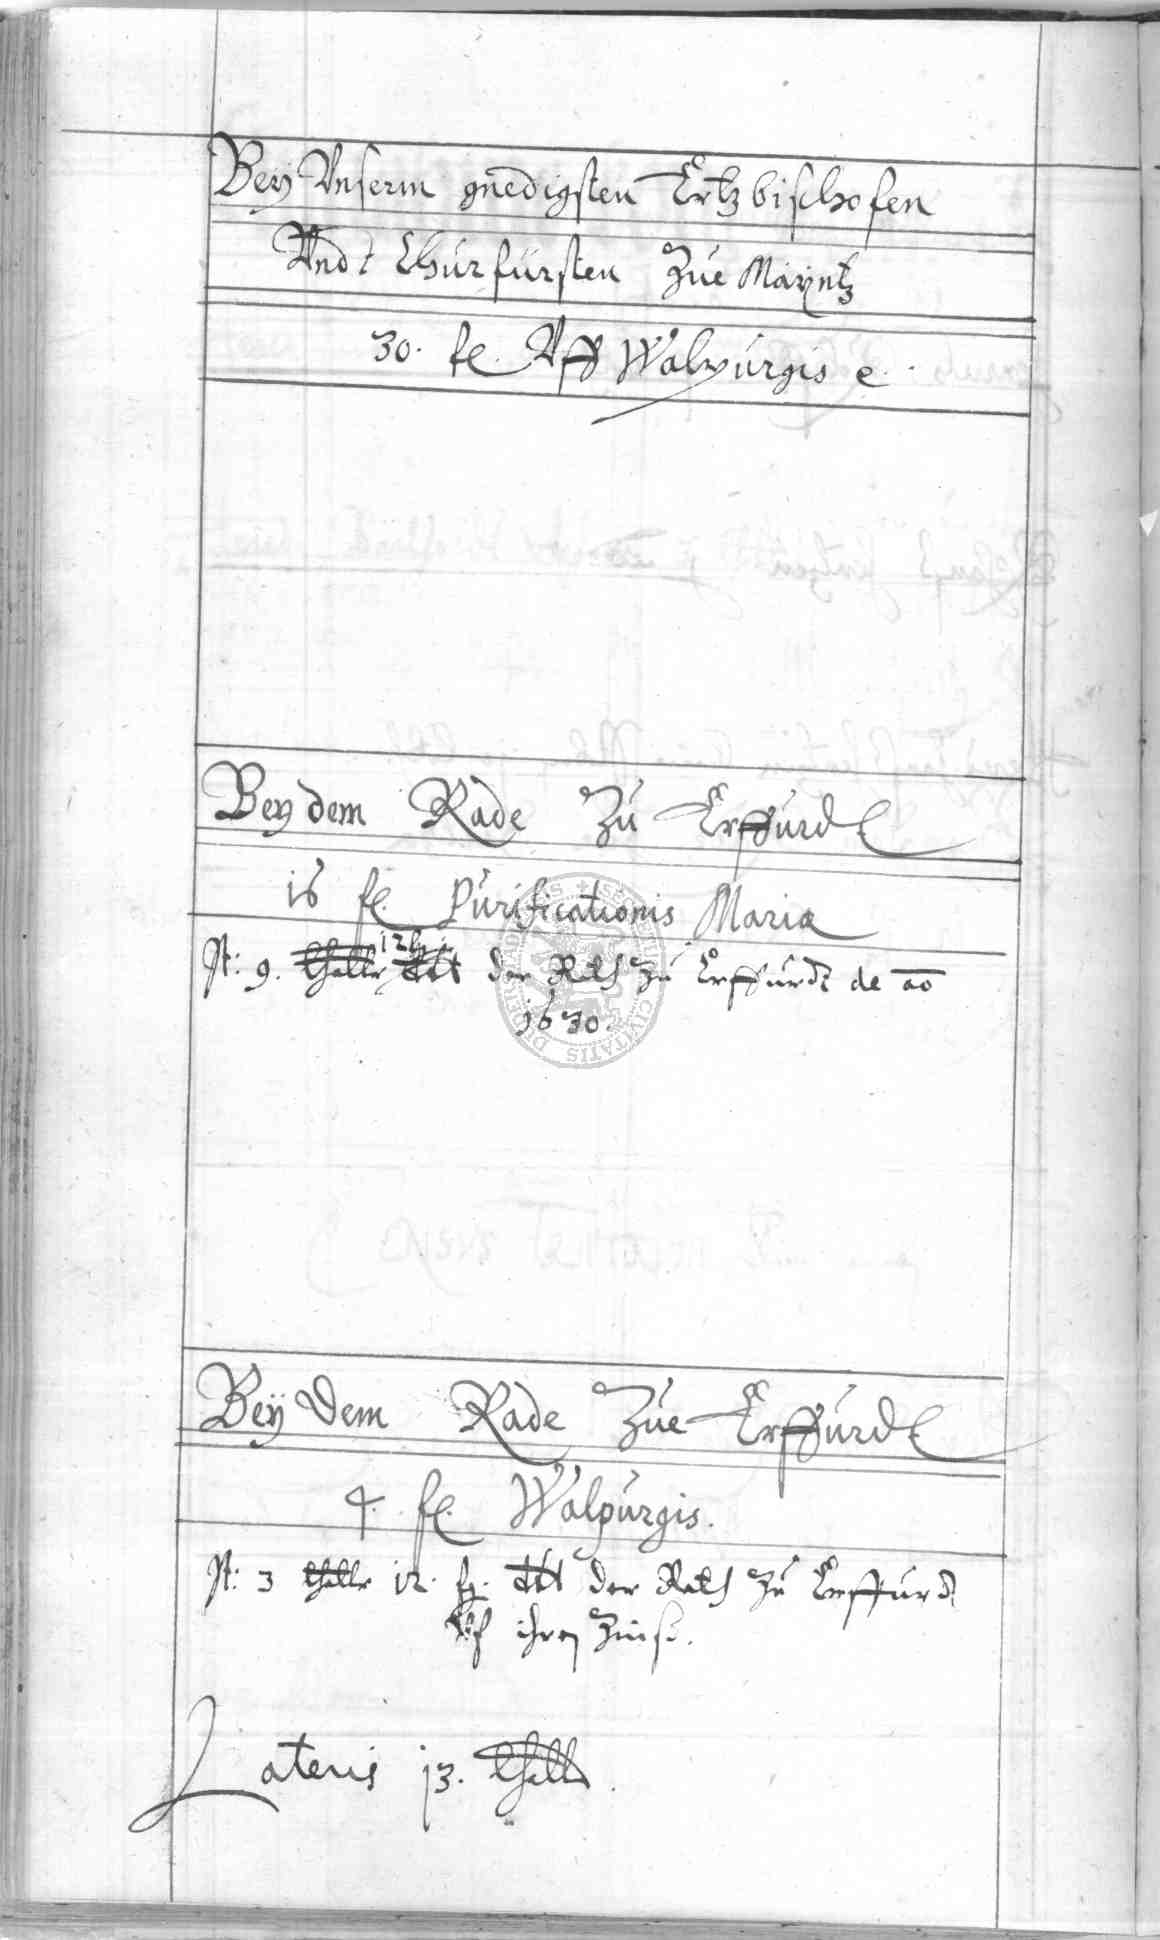 Bey Vnserm gnedigsten Ertzbischofen
Vndt Churfürsten Zue Mayntz
30. fl. Vff Walpurgis e.
Bey dem Rade Zu Erffurdt
16 fl. Purificationis Maria
9. thaler 12 der Rath zu Erffurdt de ao
1630.
Bey Dem Rade Zue Erffurdt
4. fl. Walpurgis.
3 thaler 12. der Rath zu Erffurdt
ihren Zinß.
Lateris 13. thaler